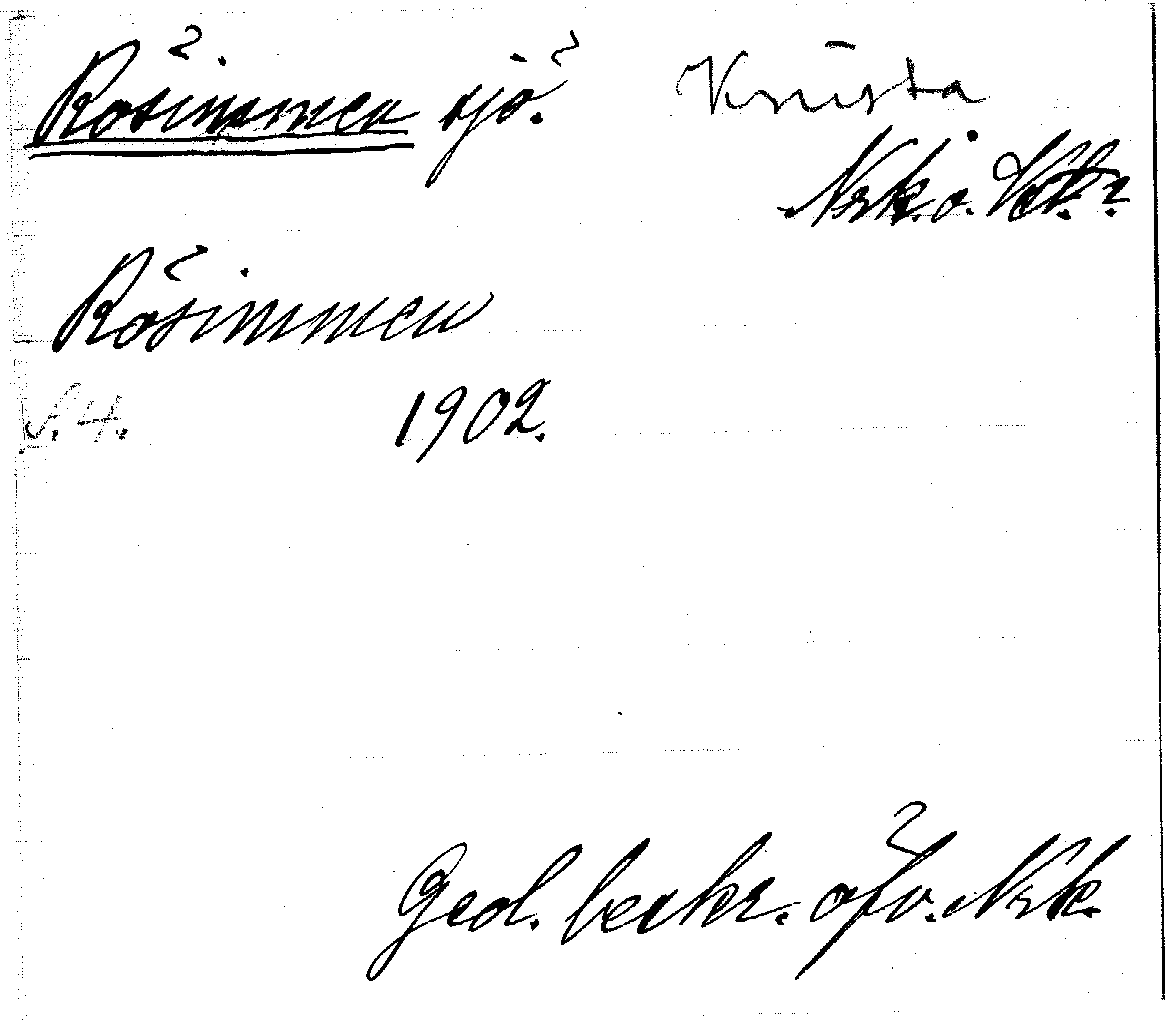 Rösimmen sjö. Knista
Nrk. o.
Rösimmen
s. 4. 1902.
Geol. beskr. öfv. Nrk.